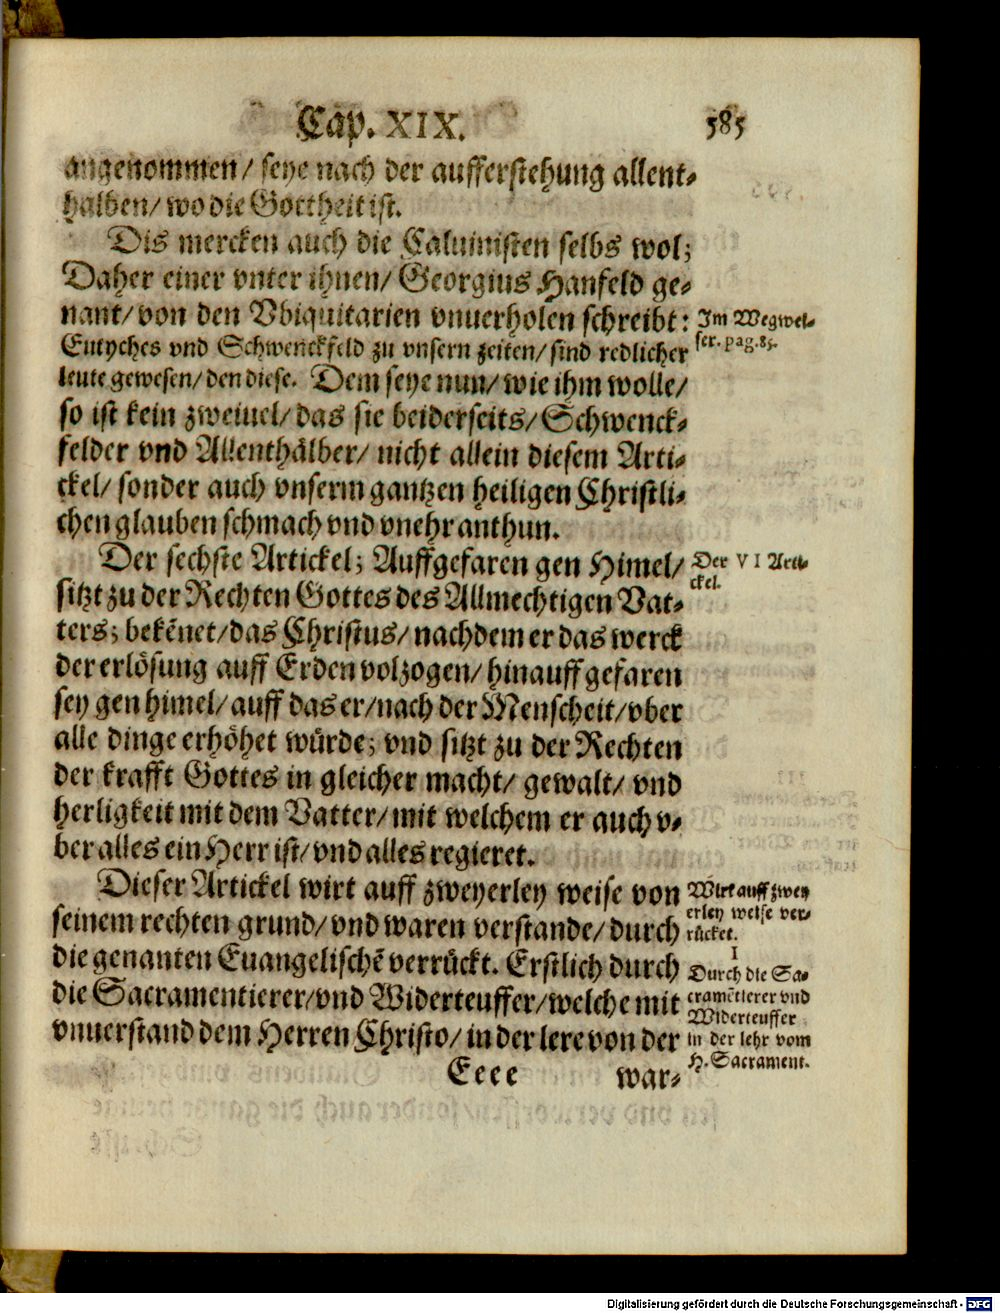 Cap. XIX. 585
angenommen/ seye nach der aufferstehung allent-
halben/ wo die Gottheit ist.
Dis mercken auch die Caluinisten selbs wol;
Daher einer vnter ihnen/ Georgius Hanfeld ge-
nant/ von den Vbiquitarien vnuerholen schreibt:
Im Wegwei-
ser. pag. 85.
Eutyches vnd Schwenckfeld zu vnsern zeiten/ sind redlicher
leute gewesen/ den diese. Dem seye nun/ wie ihm wolle/
so ist kein zweiuel/ das sie beiderseits/ Schwenck-
felder vnd Allenthälber/ nicht allein diesem Arti-
ckel/ sonder auch vnserm gantzen heiligen Christli-
chen glauben schmach vnd vnehr anthun.
Der sechste Artickel; Auffgefaren gen Himel/
Der VI Arti-
ckel.
sitzt zu der Rechten Gottes des Allmechtigen Vat-
ters; bekēnet/ das Christus/ nachdem er das werck
der erlösung auff Erden volzogen/ hinauff gefaren
sey gen himel/ auff das er/ nach der Menscheit/ vber
alle dinge erhöhet würde; vnd sitzt zu der Rechten
der krafft Gottes in gleicher macht/ gewalt/ vnd
herligkeit mit dem Vatter/ mit welchem er auch v-
ber alles ein Herr ist/ vnd alles regieret.
Dieser Artickel wirt auff zweyerley weise von
seinem rechten grund/ vnd waren verstande/ durch
die genanten Euangelischē verrückt. Erstlich durch
die Sacramentierer/ vnd Widerteuffer/ welche mit
vnuerstand dem Herren Christo/ in der lere von der
Wirt auff zwey
erley weise ver-
rücket.
I
Durch die Sa-
cramētierer vnd
Widerteuffer
in der lehr vom
H. Sacrament.
Eeee war-
Digitalisierung gefördert durch die Deutsche Forschungsgemeinschaft - DFG